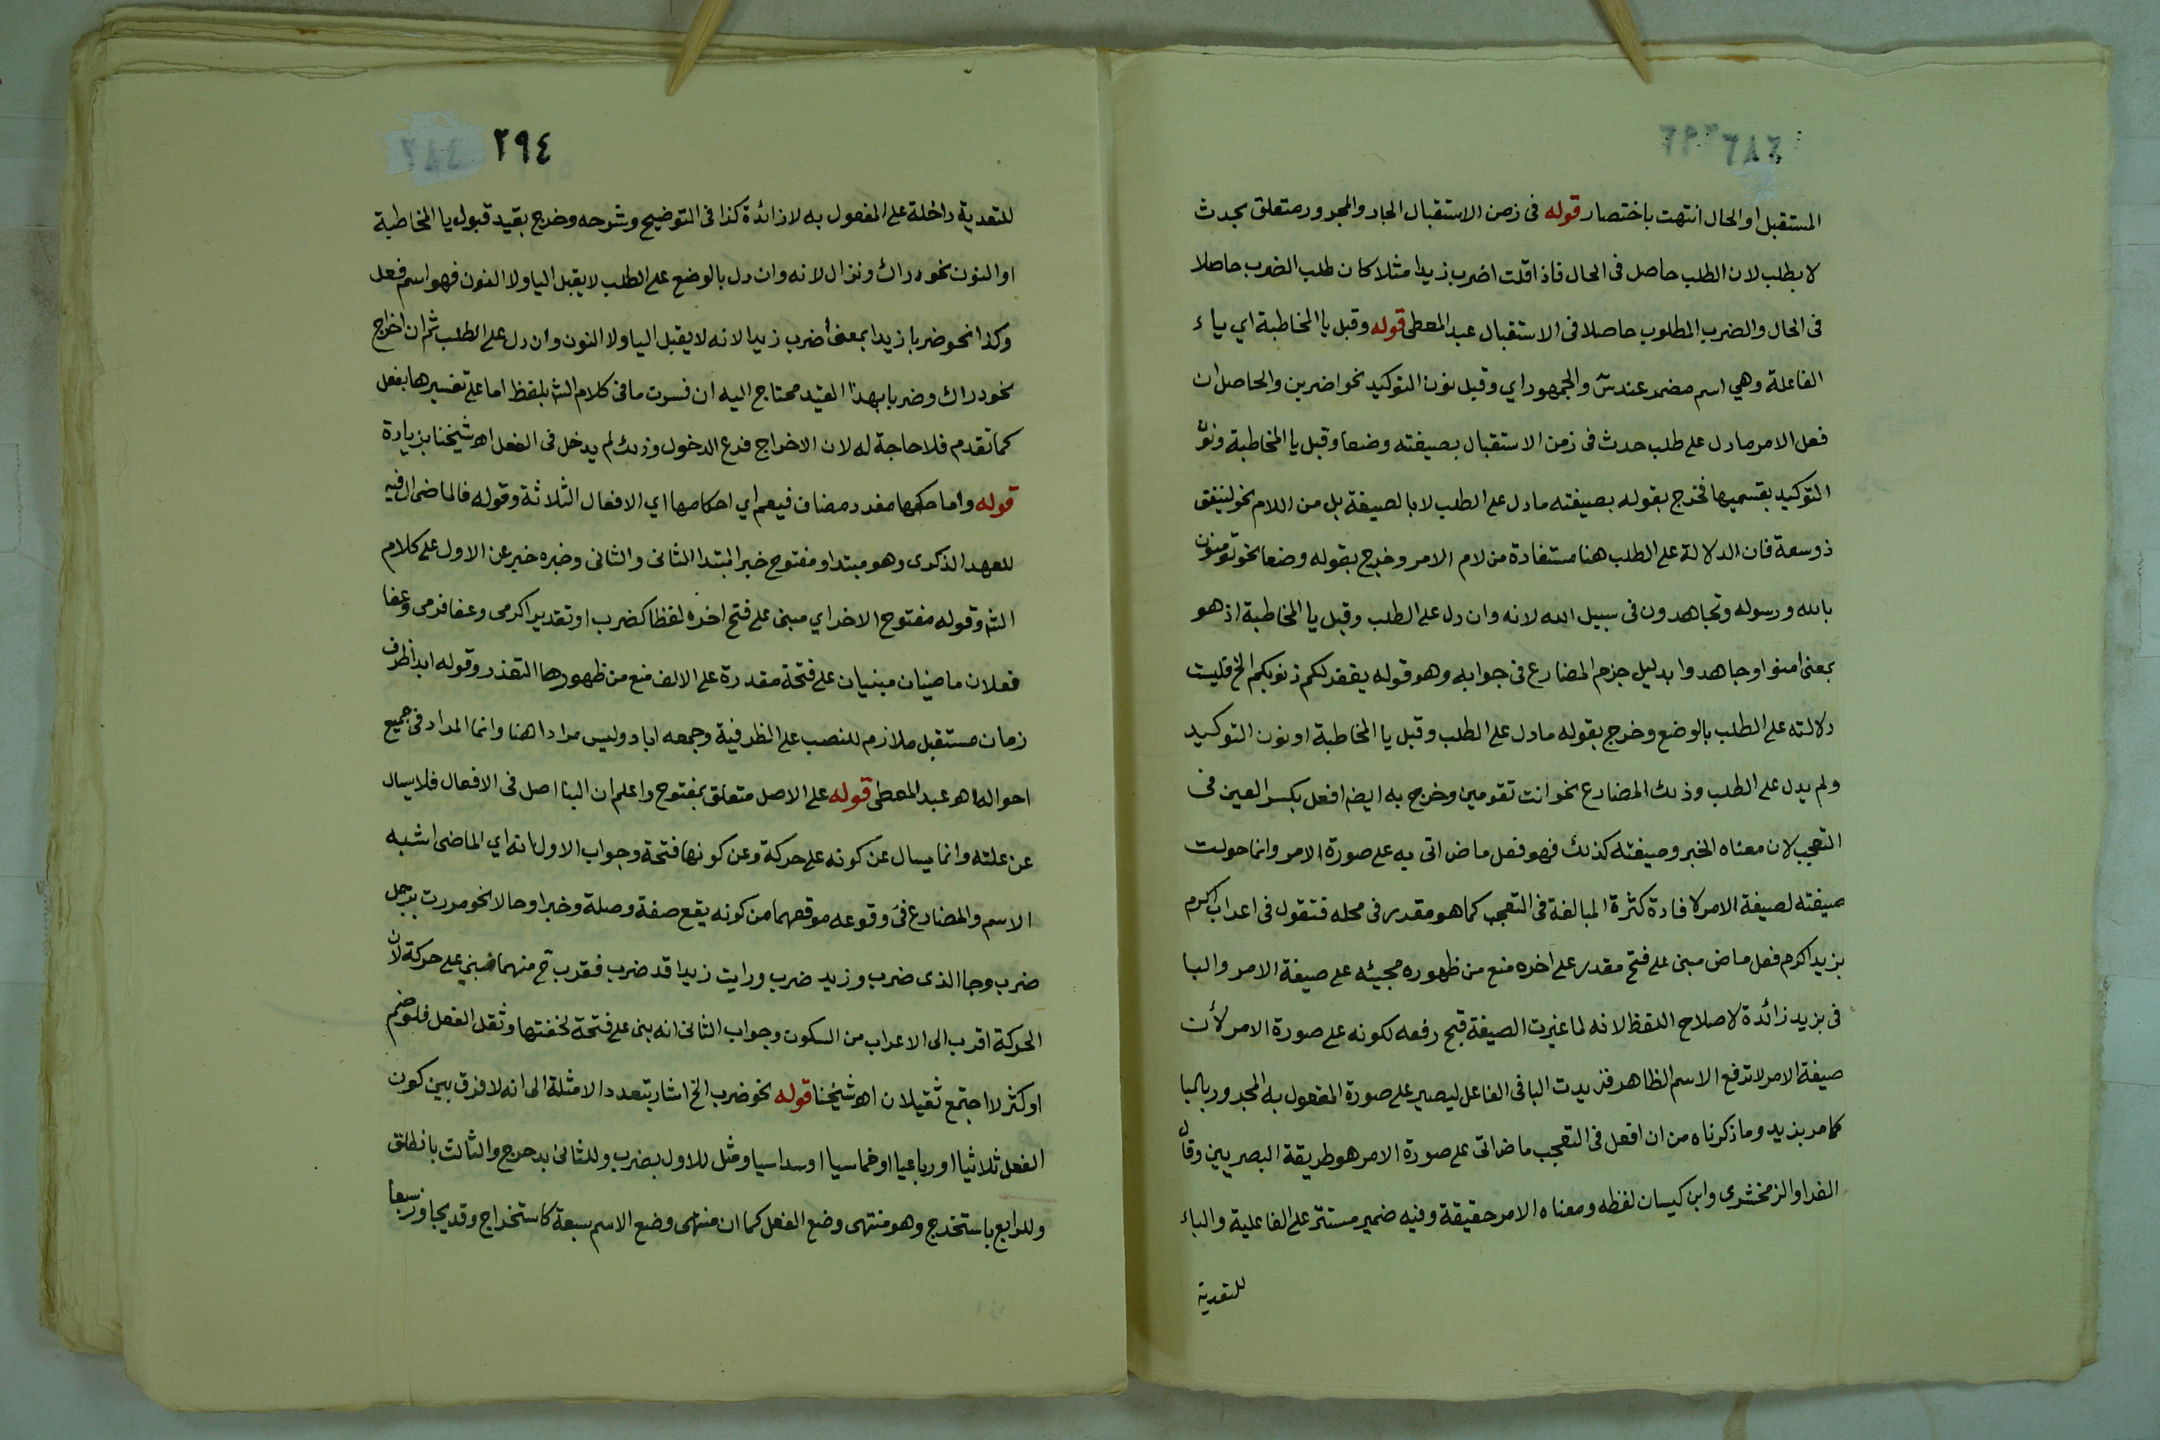 المستقبل او الحال انتهت باختصار قوله فى زمن الاستقبال الجار والمجرور متعلق بحدث
لا بطلب لان الطلب حاصل فى الحال فاذا قلت اضرب زيدا مثلا كان طلب الضرب حاصلا
فى الحال والضرب المطلوب حاصلا فى الاستقبال عبد المعطى قوله وقبل يا المخاطبة اي ياء
الفاعلة وهي اسم مضمر عند س والجمهور اي وقبل نون التوكيد نحو اضربن والحاصل ان
فعل الامر ما دل على طلب حدث فى زمن الاستقبال بصيغته وضعا وقبل يا المخاطبة ونون
التوكيد بقسميها فخرج بقوله بصيغته ما دل على الطلب لا بالصيغة بل من اللام نحو لينفق
ذو سعة فان الدلالة على الطلب هنا مستفادة من لام الامر وخرج بقوله وضعا نحو تؤمنون
بالله ورسوله وتجاهدون فى سبيل الله لانه وان دل على الطلب وقبل يا المخاطبة اذ هو
بمعنى امنوا وجاهدوا بدليل جزم المضارع فى جوابه وهو قوله يغفر لكم ذنوبكم الخ فليست
دلالته على الطلب بالوضع وخرج بقوله ما دل على الطلب وقبل يا المخاطبة او نون التوكيد
ولم يدل على الطلب وذلك المضارع نحو انت تقومين وخرج به ايضا افعل بكسر العين فى
التعجب لان معناه الخبر وصيغته كذلك فهو فعل ماض اتى به على صورة الامر وانما حولت
صيغته لصيغة الامر لافادة كثرة المبالغة فى التعجب كما هو مقدر فى محله فتقول فى اعراب اكرم
بزيد اكرم فعل ماض مبنى على فتح مقدر على اخره منع من ظهوره مجيئه على صيغة الامر والبا
فى بزيد زائدة لاصلاح اللفظ لانه لما غيرت الصيغة قبح رفعه لكونه على صورة الامر لأن
صيغة الامر لا ترفع الاسم الظاهر فزيدت البا فى الفاعل ليصير على صورة المفعول به المجرور بالبا
كامرر بزيد وما ذكرناه من ان افعل فى التعجب ماض اتى على صورة الامر هو طريقة البصريين وقال
الفرا والزمخشرى وابن كيسان لفظه ومعناه الامر حقيقة وفيه ضمير مستتر على الفاعلية والباء
للتعدية
٢٩٤
للتعدية داخلة على المفعول به لا زائدة كذا فى التوضيح وشرحه وخرج بقيد قبول يا المخاطبة
او النون نحو دراك ونزال لانه وان دل بالوضع على الطلب لا يقبل اليا ولا النون فهو اسم فعل
وكذا نحو ضربا زيدا بمعنى اضرب زيدا لانه لا يقبل اليا ولا النون وان دل على الطلب ثم ان اخراج
نحو دراك وضربا بهذا القيد محتاج اليه ان فسرت ما فى كلام الشه بلفظ اما على تفسيرها بفعل
كما تقدم فلا حاجة له لان الاخراج فرع الدخول وذلك لم يدخل فى الفعل اهـ شيخنا بزيادة
قوله واما حكمها مفرد مضاف فيعم اي احكامها اي الافعال الثلاثة وقوله فالماضى ال فيه
للعهد الذكرى وهو مبتدا ومفتوح خبر المبتدا الثانى والثانى وخبره خبر عن الاول على كلام
الشه وقوله مفتوح الاخر اي مبنى على فتح اخره لفظا كضرب او تقدير اكرمى وعفا فرمى وعفا
فعلان ماضيان مبنيان على فتحة مقدرة على الالف منع من ظهورها التعذر وقوله ابدا ظرف
زمان مستقبل ملازم للنصب على الظرفية وجمعه اباد وليس مرادا هنا وانما المراد فى جميع
احواله اهـ عبد المعطى قوله على الاصل متعلق بمفتوح واعلم ان البنا اصل فى الافعال فلا يسال
عن علته وانما يسال عن كونه على حركة وعن كونها فتحة وجواب الاول انه اي الماضى اشبه
الاسم والمضارع فى وقوعه موقعهما من كونه يقع صفة وصلة وخبرا وحالا نحو مررت برجل
ضرب وجا الذى ضرب وزيد ضرب ورايت زيدا قد ضرب فقرب ح منهما فبنى على حركة لان
الحركة اقرب الى الاعراب من السكون وجواب الثانى انه بنى على فتحة لخفتها وثقل الفعل فلو ضم
او كثر لاجتمع ثقيلان اهـ شيخنا قوله نحو ضرب الخ اشار بتعدد الامثلة الى انه لا فرق بين كون
الفعل ثلاثيا او رباعيا او خماسيا او سداسيا ومثل للاول بضرب وللثانى بدحرج والثالث بانطلق
وللرابع باستخرج وهو منتهى وضع الفعل كما ان منتهى وضع الاسم سبعة كاستخراج وقد يجاوز سبعا